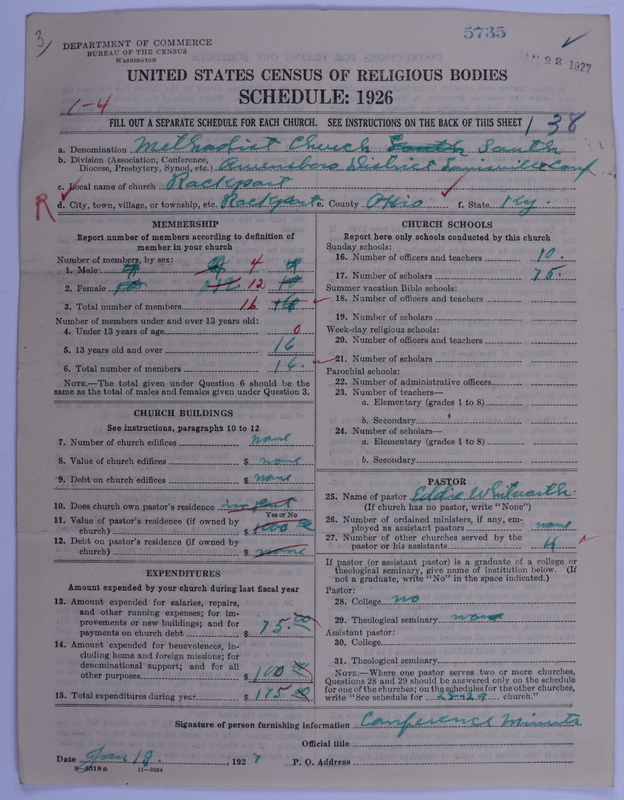 3
5735
DEPARTMENT OF COMMERCE
BUREAU OF THE CENSUS
WASHINGTON
JAN 22 1927
UNITED STATES CENSUS OF RELIGIOUS BODIES
SCHEDULE: 1926
1-4
FILL OUT A SEPARATE SCHEDULE FOR EACH CHURCH. SEE INSTRUCTIONS ON THE BACK OF THIS SHEET
138
a. Denomination Methodist Church South
b. Division (Association, Conference,
Diocese, Presbytery, Synod, etc.) Owensboro District Louisville Conf
c. Local name of church Rockport
R d. City, town, village, or township, etc. Rockport e. County Ohio f. State Ky.
MEMBERSHIP
Report number of members according to definition of
member in your church
Number of members, by sex:
1. Male 4
2. Female 12
3. Total number of members 16
Number of members under and over 13 years old:
4. Under 13 years of age 0
5. 13 years old and over 16
6. Total number of members 16
NOTE.—The total given under Question 6 should be the
same as the total of males and females given under Question 3.
CHURCH BUILDINGS
See instructions, paragraphs 10 to 12
7. Number of church edifices none
8. Value of church edifices $ none
9. Debt on church edifices $ none
10. Does church own pastor's residence
Yes or No
11. Value of pastor's residence (if owned by
church) $
12. Debt on pastor's residence (if owned by
church) $ none
EXPENDITURES
Amount expended by your church during last fiscal year
13. Amount expended for salaries, repairs,
and other running expenses; for im-
provements or new buildings; and for
payments on church debt $ 75.00
14. Amount expended for benevolences, in-
cluding home and foreign missions; for
denominational support; and for all
other purposes $ 100.00
15. Total expenditures during year $ 175.00
CHURCH SCHOOLS
Report here only schools conducted by this church
Sunday schools:
16. Number of officers and teachers 10.
17. Number of scholars 75
Summer vacation Bible schools:
18. Number of officers and teachers
19. Number of scholars
Week-day religious schools:
20. Number of officers and teachers
21. Number of scholars
Parochial schools:
22. Number of administrative officers
23. Number of teachers—
a. Elementary (grades 1 to 8)
b. Secondary
24. Number of scholars—
a. Elementary (grades 1 to 8)
b. Secondary
PASTOR
25. Name of pastor Eddie Whitworth
(If church has no pastor, write "None")
26. Number of ordained ministers, if any, em-
ployed as assistant pastors none
27. Number of other churches served by the
pastor or his assistants 4
If pastor (or assistant pastor) is a graduate of a college or
theological seminary, give name of institution below. (If
not a graduate, write "No" in the space indicated.)
Pastor:
28. College no
29. Theological seminary none
Assistant pastor:
30. College
31. Theological seminary
NOTE.—Where one pastor serves two or more churches,
Questions 28 and 29 should be answered only on the schedule
for one of the churches; on the schedules for the other churches,
write "See schedule for 28-29 church."
Signature of person furnishing information Conference Minutes
Official title
Date Jan 19. , 1927 P. O. Address
8-3318a 11-9634